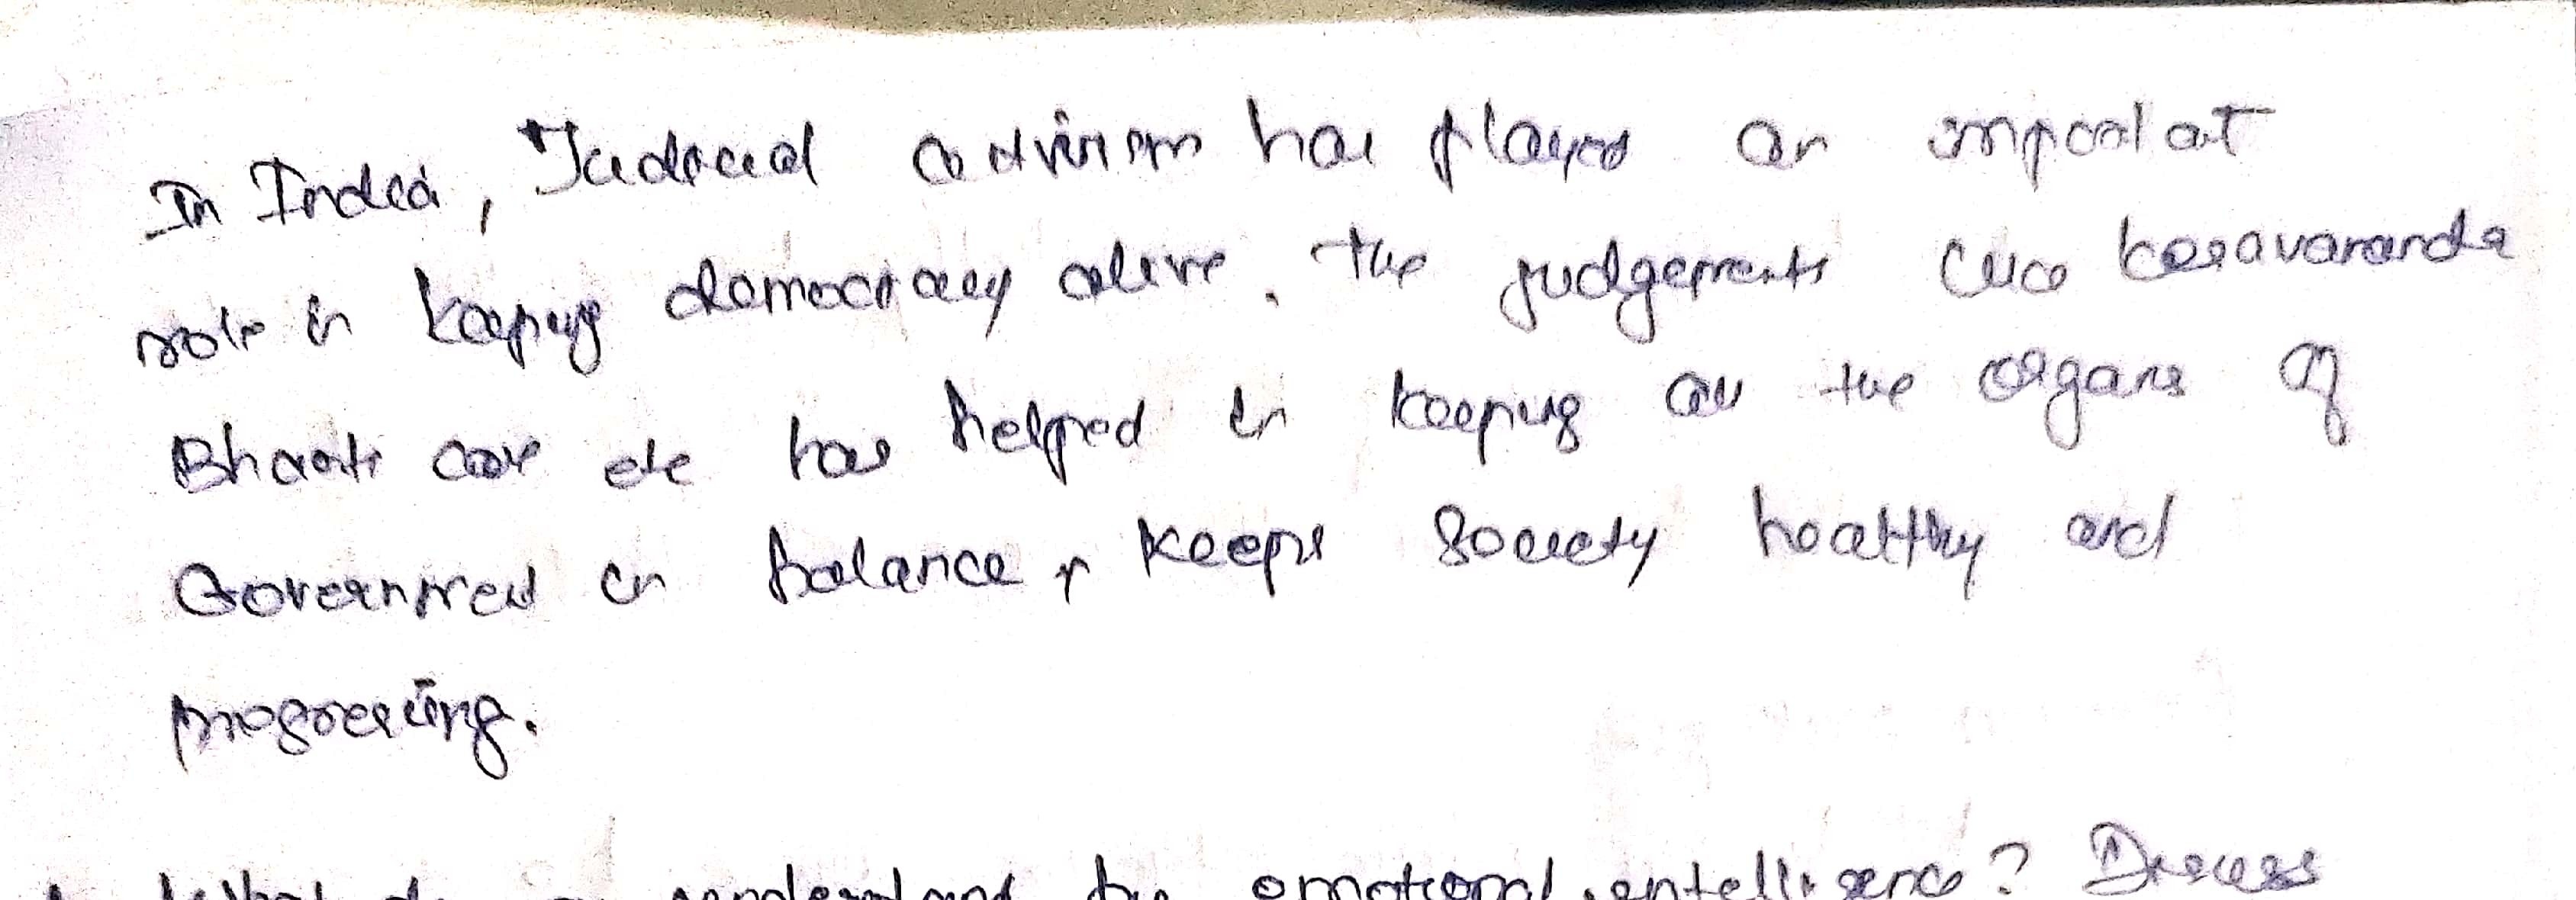 In India, Judicial activism has played an important
role in keeping democracy alive. The judgements like Kesavananda
Bharti case etc has helped in keeping all the organs of
Government in balance, keeps society healthy and
progressing.
What do understand by emotional intelligence? Discuss